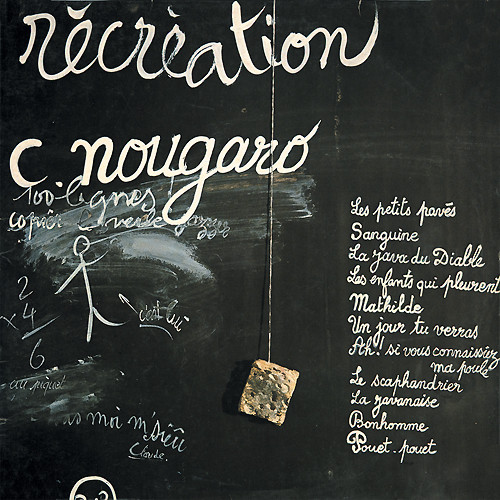 récréation
c nougaro
100 lignes
copier le verbe jazzer
2
x 4
6
au piquet
c'est lui
pas moi m'sieu
Claude.
Les petits pavés
Sanguine
La java du Diable
Les enfants qui pleurent
Mathilde
Un jour tu verras
Ah! si vous connaissiez
ma poule
Le scaphandrier
La javanaise
Bonhomme
Pouet-pouet